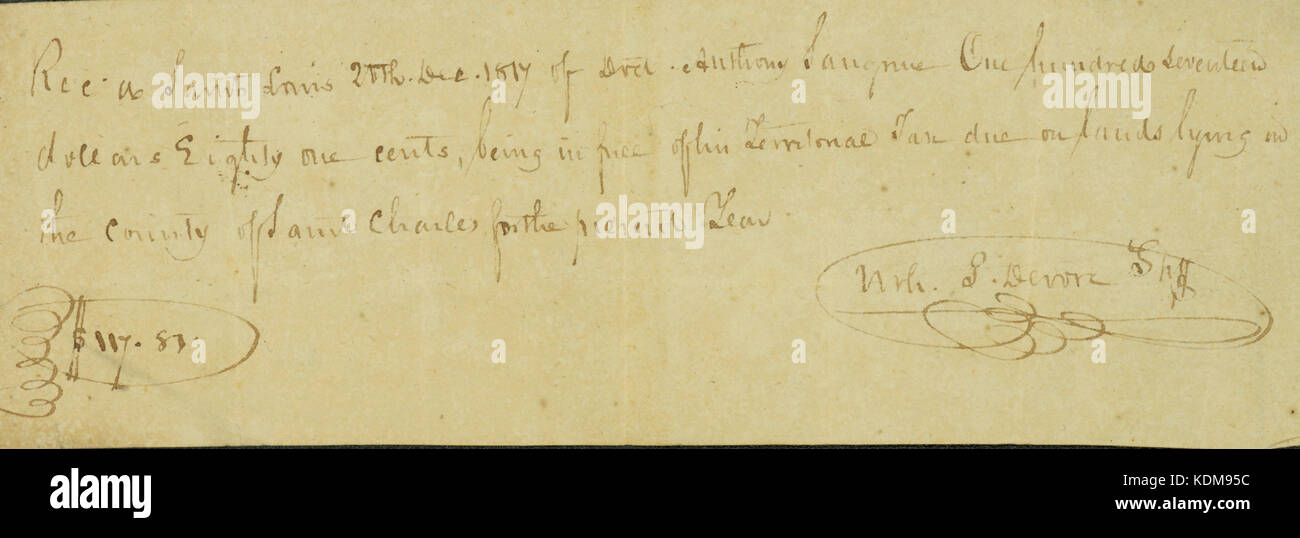 Rec'd Saint Louis 20th. Dec. 1817 of Doct. Anthony Saugrain One hundred Seventeen
dollars Eighty one cents, being in full of his Territorial Tax due on lands lying in
the County of Saint Charles for the present Year
Urh. J. Devore Shff
$117.81.
alamy stock photo
KDM95C